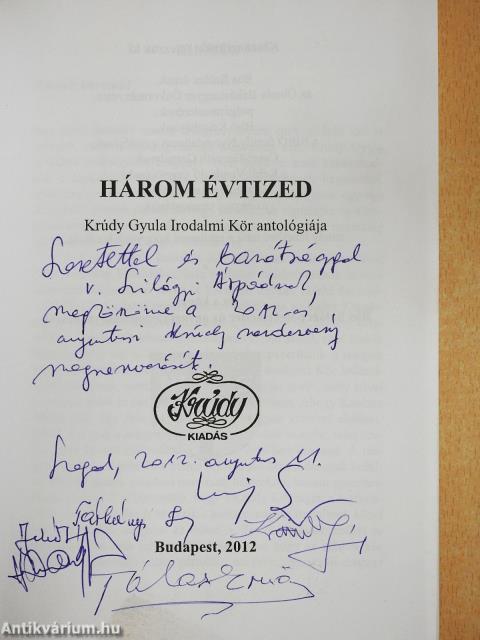 HÁROM ÉVTIZED
Krúdy Gyula Irodalmi Kör antológiája
Szeretettel és barátsággal
v. Szilágyi Árpádnak,
megköszönve a 2012-es
augusztusi Krúdy rendezvény
Krúdy
KIADÁS
Szeged, 2012. augusztus 11.
Budapest, 2012
Antikvárium.hu